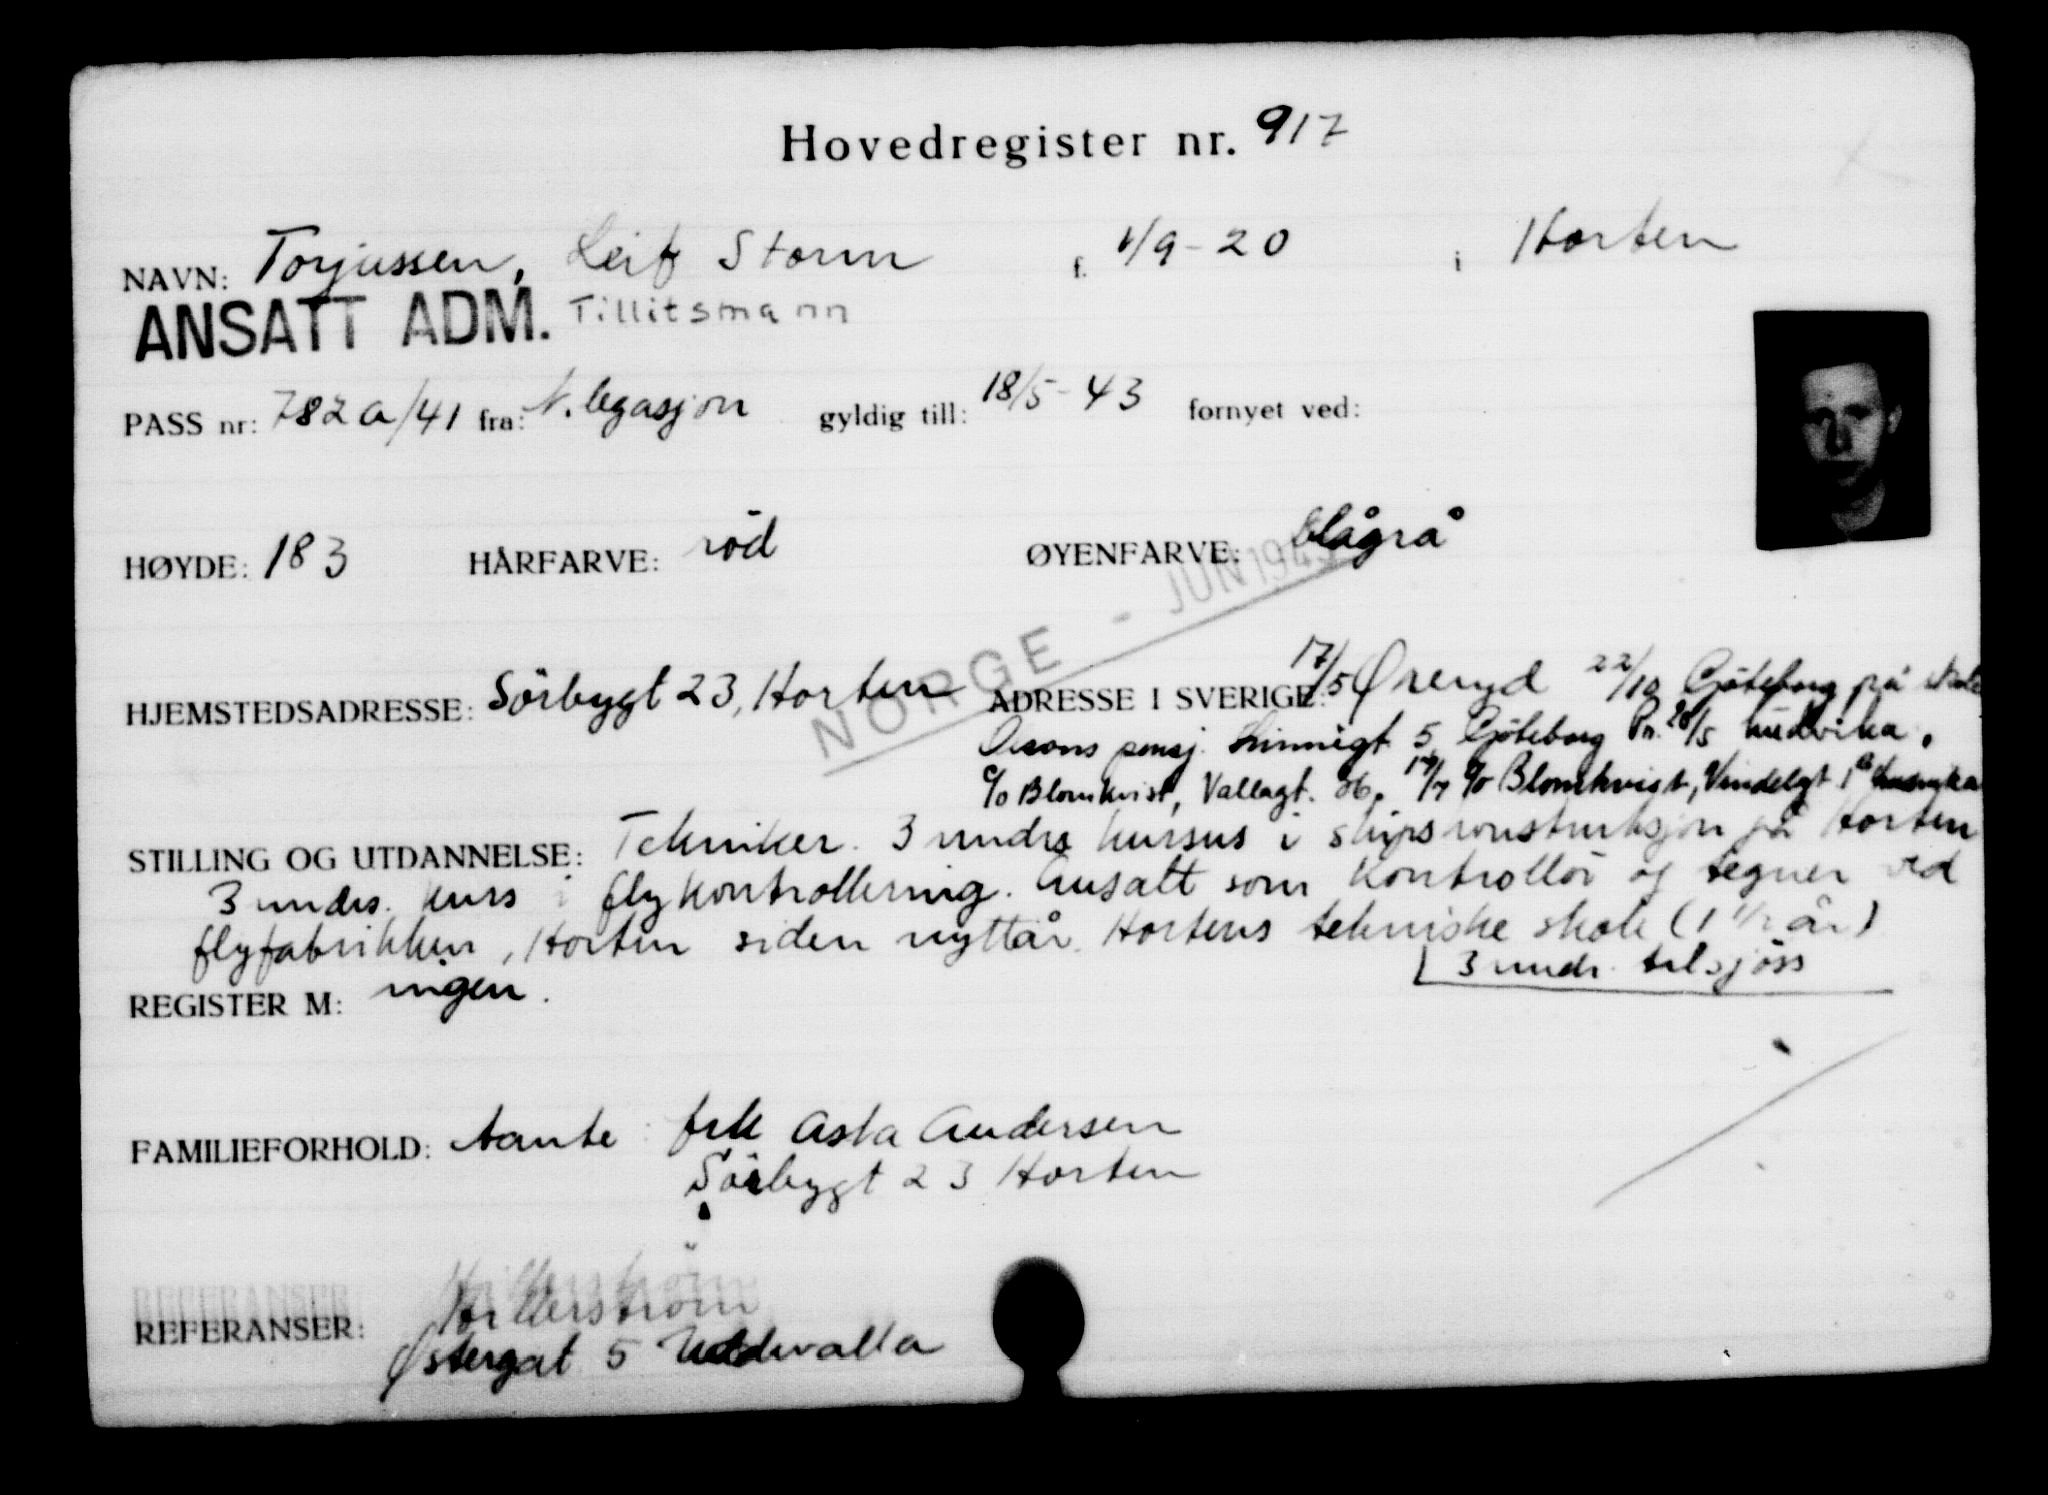 Hovedregister nr. 917
NAVN: Torjussen, Leif Storm f. 1/9-20 i Horten
ANSATT ADM. Tillitsmann
PASS nr: 782a/41 fra: N. legasjon gyldig till: 18/5-43 fornyet ved:
HØYDE: 183 HÅRFARVE: röd ØYENFARVE: blågrå
NORGE - JUN 1945
HJEMSTEDSADRESSE: Sörbygt 23, Horten ADRESSE I SVERIGE: 17/5 Øreryd 22/10 Göteborg på skole
pensj. 5 Göteborg Pn. 28/5 Ludvika.
c/o Blomkvist, Vallagt. 36. 17/7 c/o Blomkvist, Vindelgt 1B Ludvika
STILLING OG UTDANNELSE: Tekniker. 3 mndrs kursus i skipskonstruksjon på Horten
3 mndrs. kurs i flykontrollering. Ansatt som kontrollör og tegner ved
flyfabrikken, Horten siden nyttår. Hortens tekniske skole (1 1/2 år)
3 mndr. tilsjöss
REGISTER M: ingen.
FAMILIEFORHOLD: tante: frk Asta Andersen
Sörbygt 23 Horten
REFERANSER: Hillerström
Østergat 5 Uddevalla